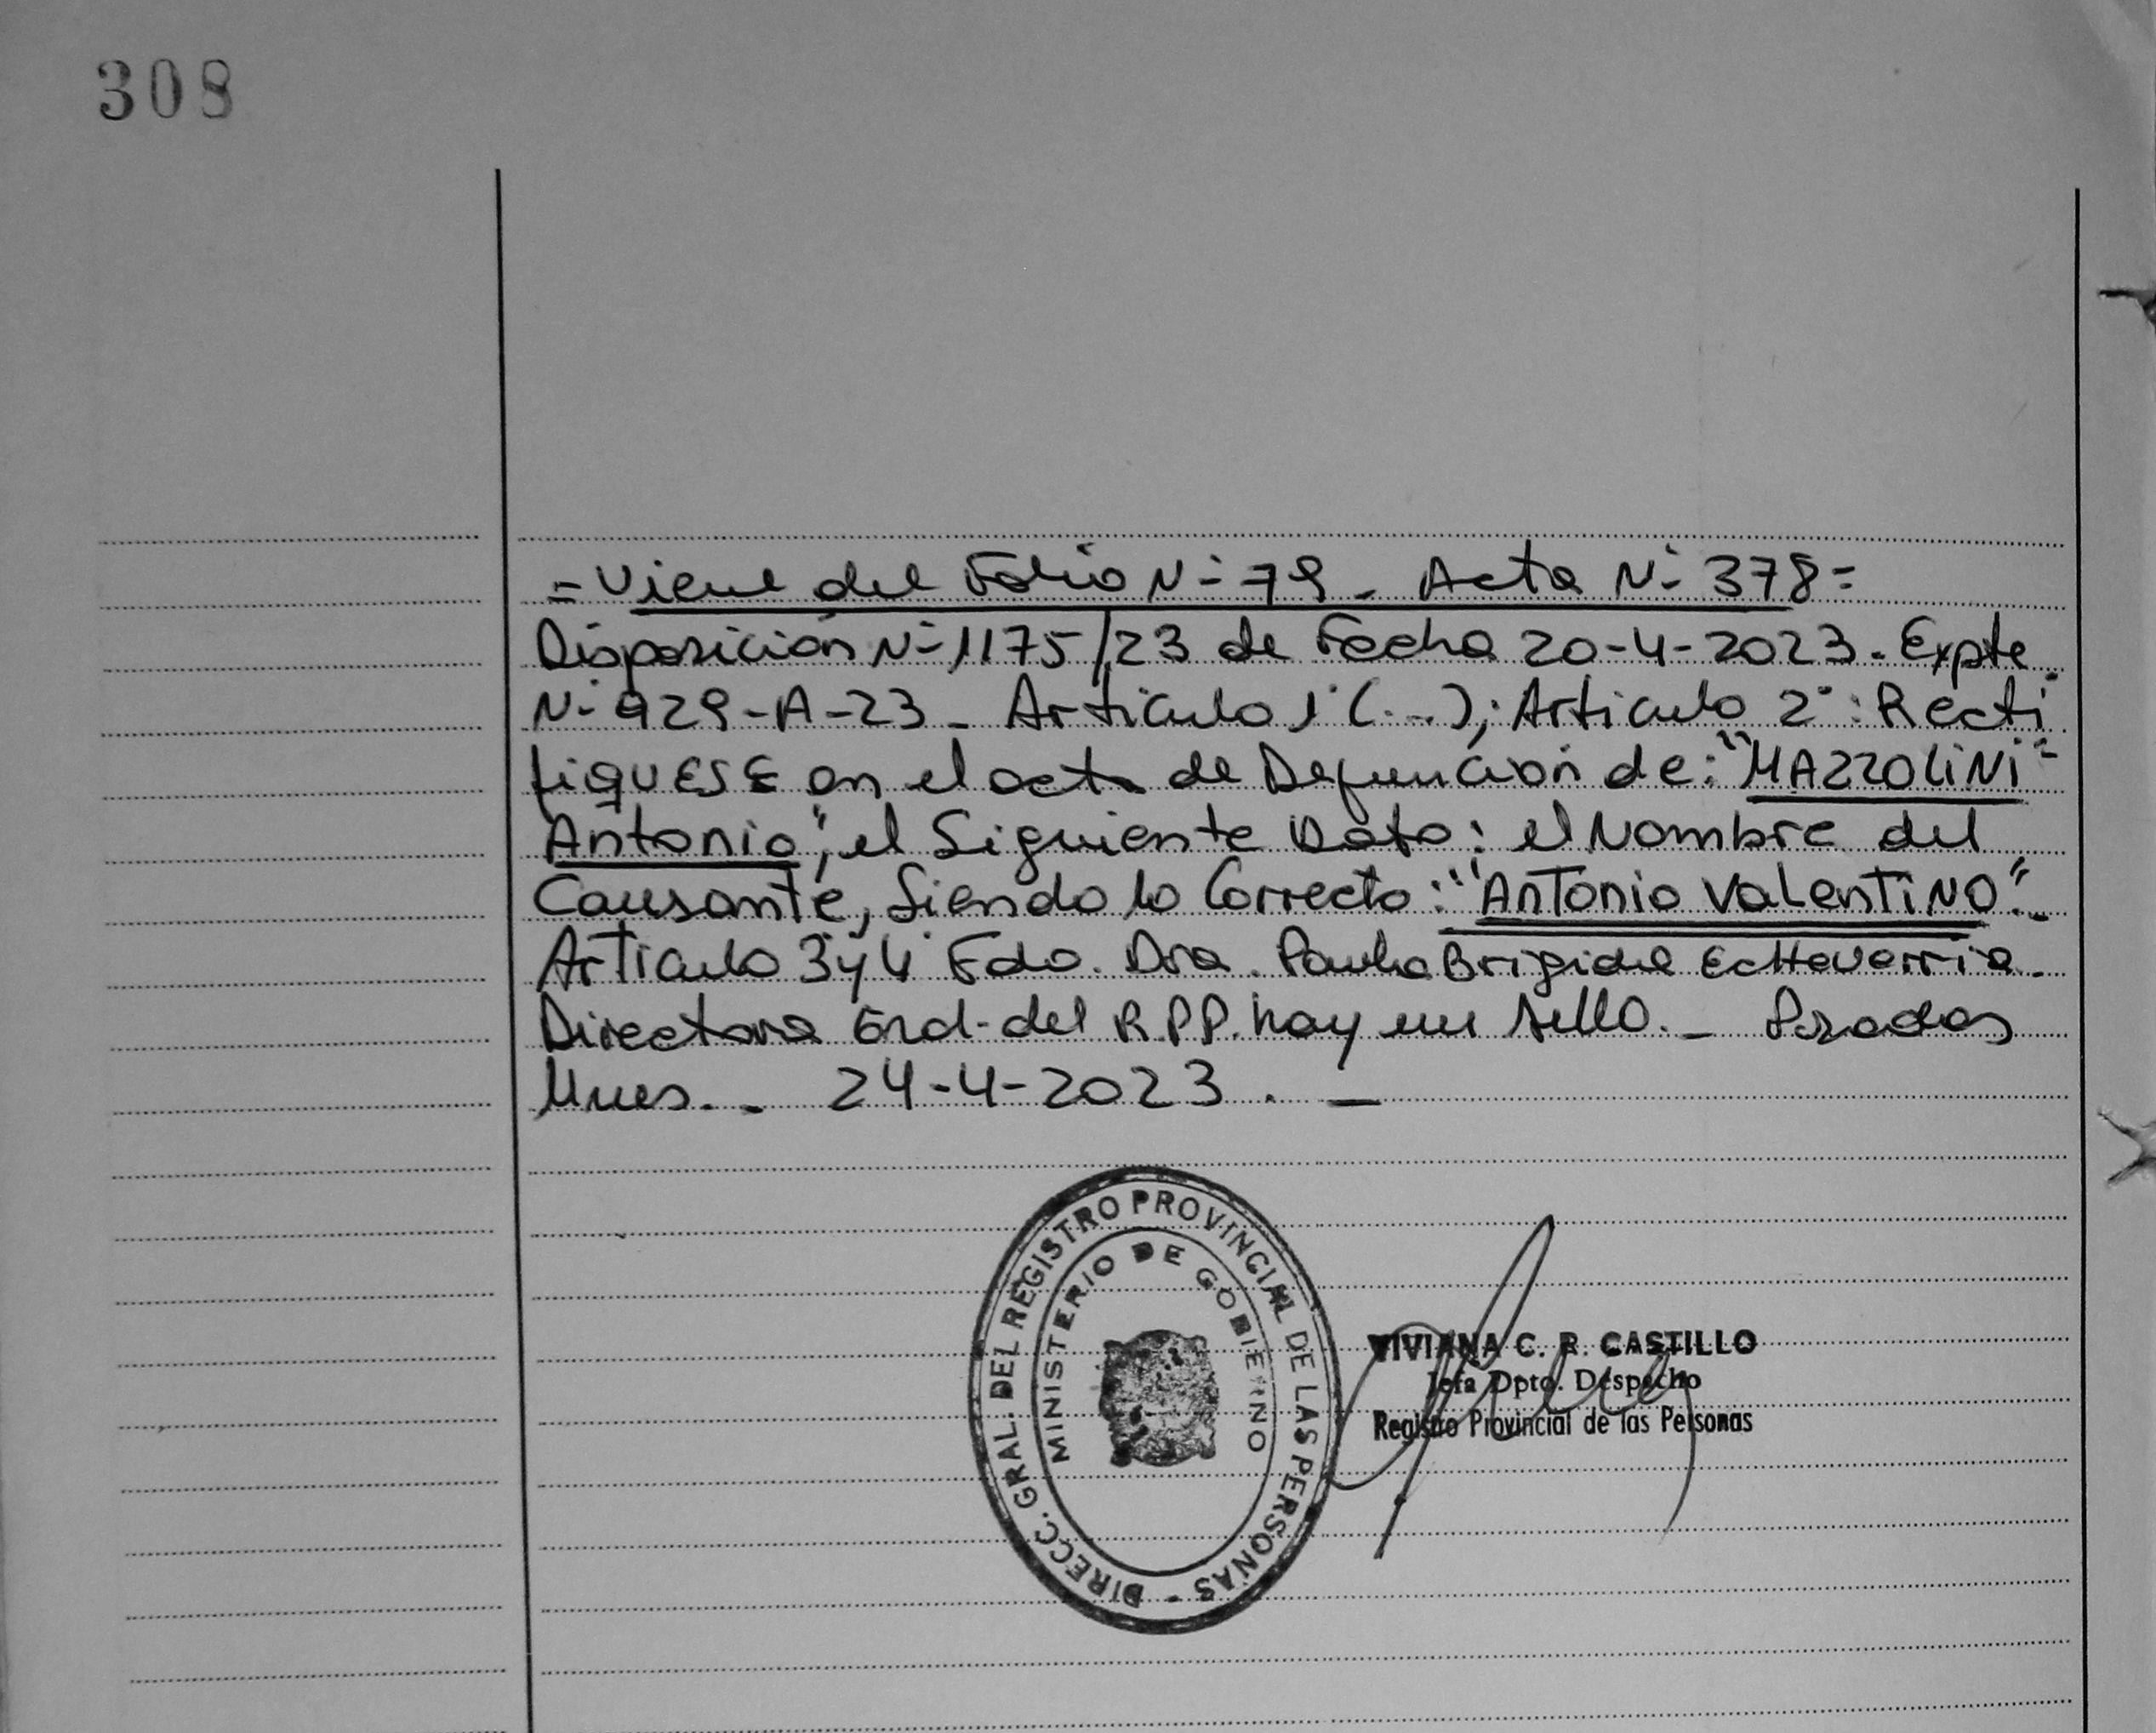 308
= Viene del Folio N° 79 - Acta N° 378 =
Disposición N° 1175/23 de Fecha 20-4-2023. Expte.
N° 929-A-23 - Articulo 1° (...); Articulo 2°: Recti
fiquESE en el acta de Defuncion de: "MAZZOLINI
Antonio", el Siguiente Dato: el Nombre del
Causante, Siendo lo Correcto: "Antonio Valentino".-
Articulo 3° y 4° Fdo. Dra. Paula Brigida Echeverria.
Directora Gral. del R.P.P. hay un sello. - Posadas
Mnes. - 24-4-2023. -
DIRECC. GRAL. DEL REGISTRO PROVINCIAL DE LAS PERSONAS -
MINISTERIO DE GOBIERNO
VIVIANA C. R. CASTILLO
Jefa Dpto. Despacho
Registro Provincial de las Personas